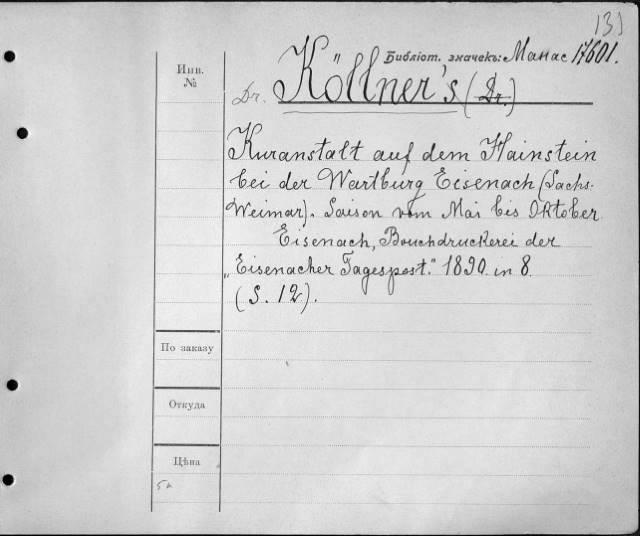 13)
Библіот. значекъ: Манас 17601.
Инв. №
Dr. Köllner's (Dr.)
Kuranstalt auf dem Hainstein
bei der Wartburg Eisenach (Sachs.
Weimar). Saison vom Mai bis Oktober.
Eisenach, Bouchdruckerei der
„Eisenacher Tagespost." 1890. in 8.
(S. 12).
По заказу
Откуда
Цѣна